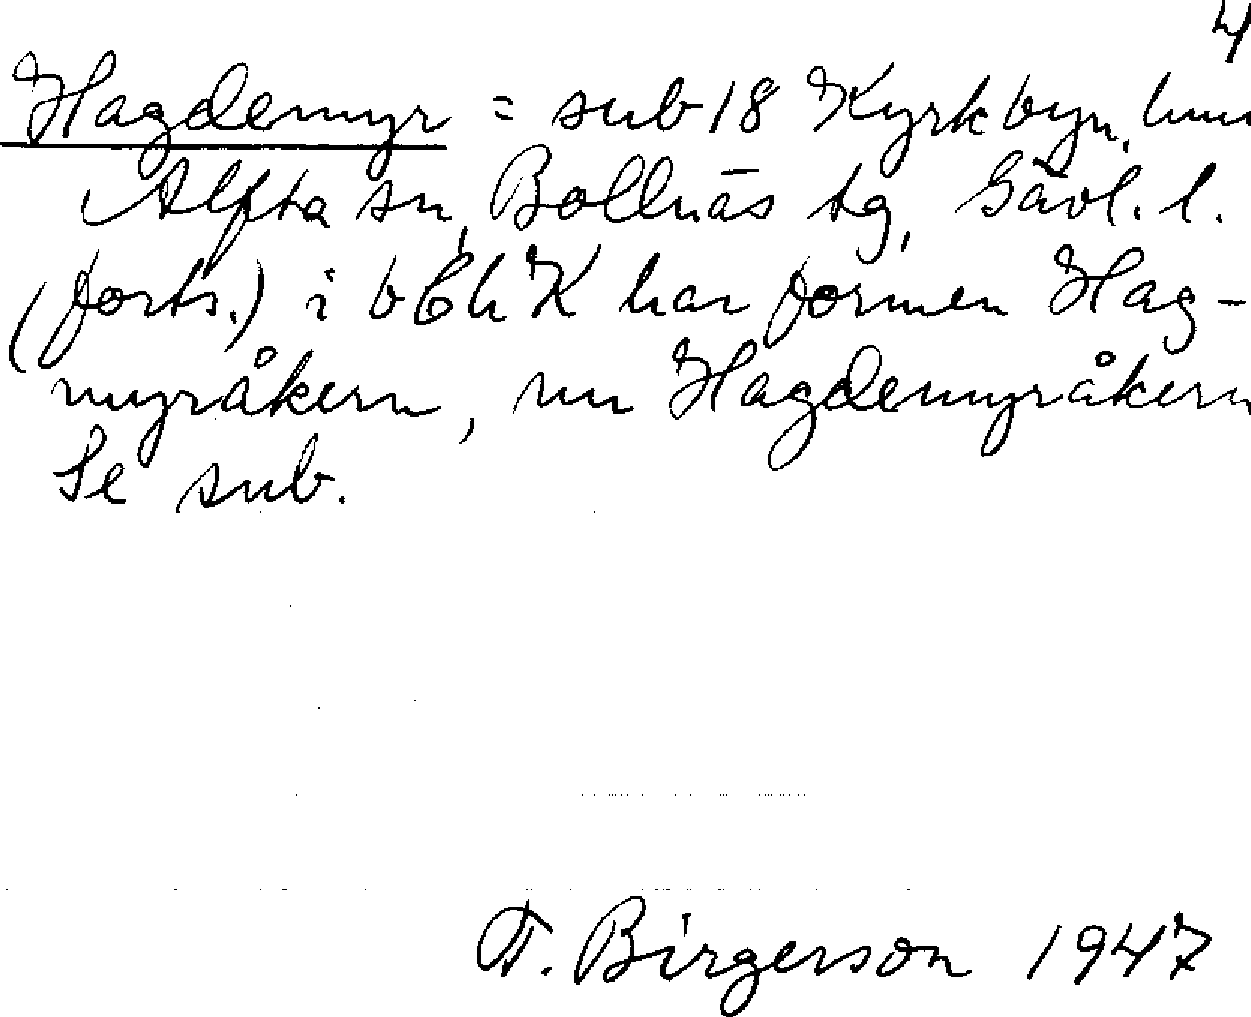 4
Hagdemyr = sub 18 Kyrkbyn,
Alfta sn, Bollnäs tg, Gävl. l.
(forts.) i bEhK har formen Hag-
myråkern, nu Hagdemyråkern
Se sub.
F. Birgerson 1947